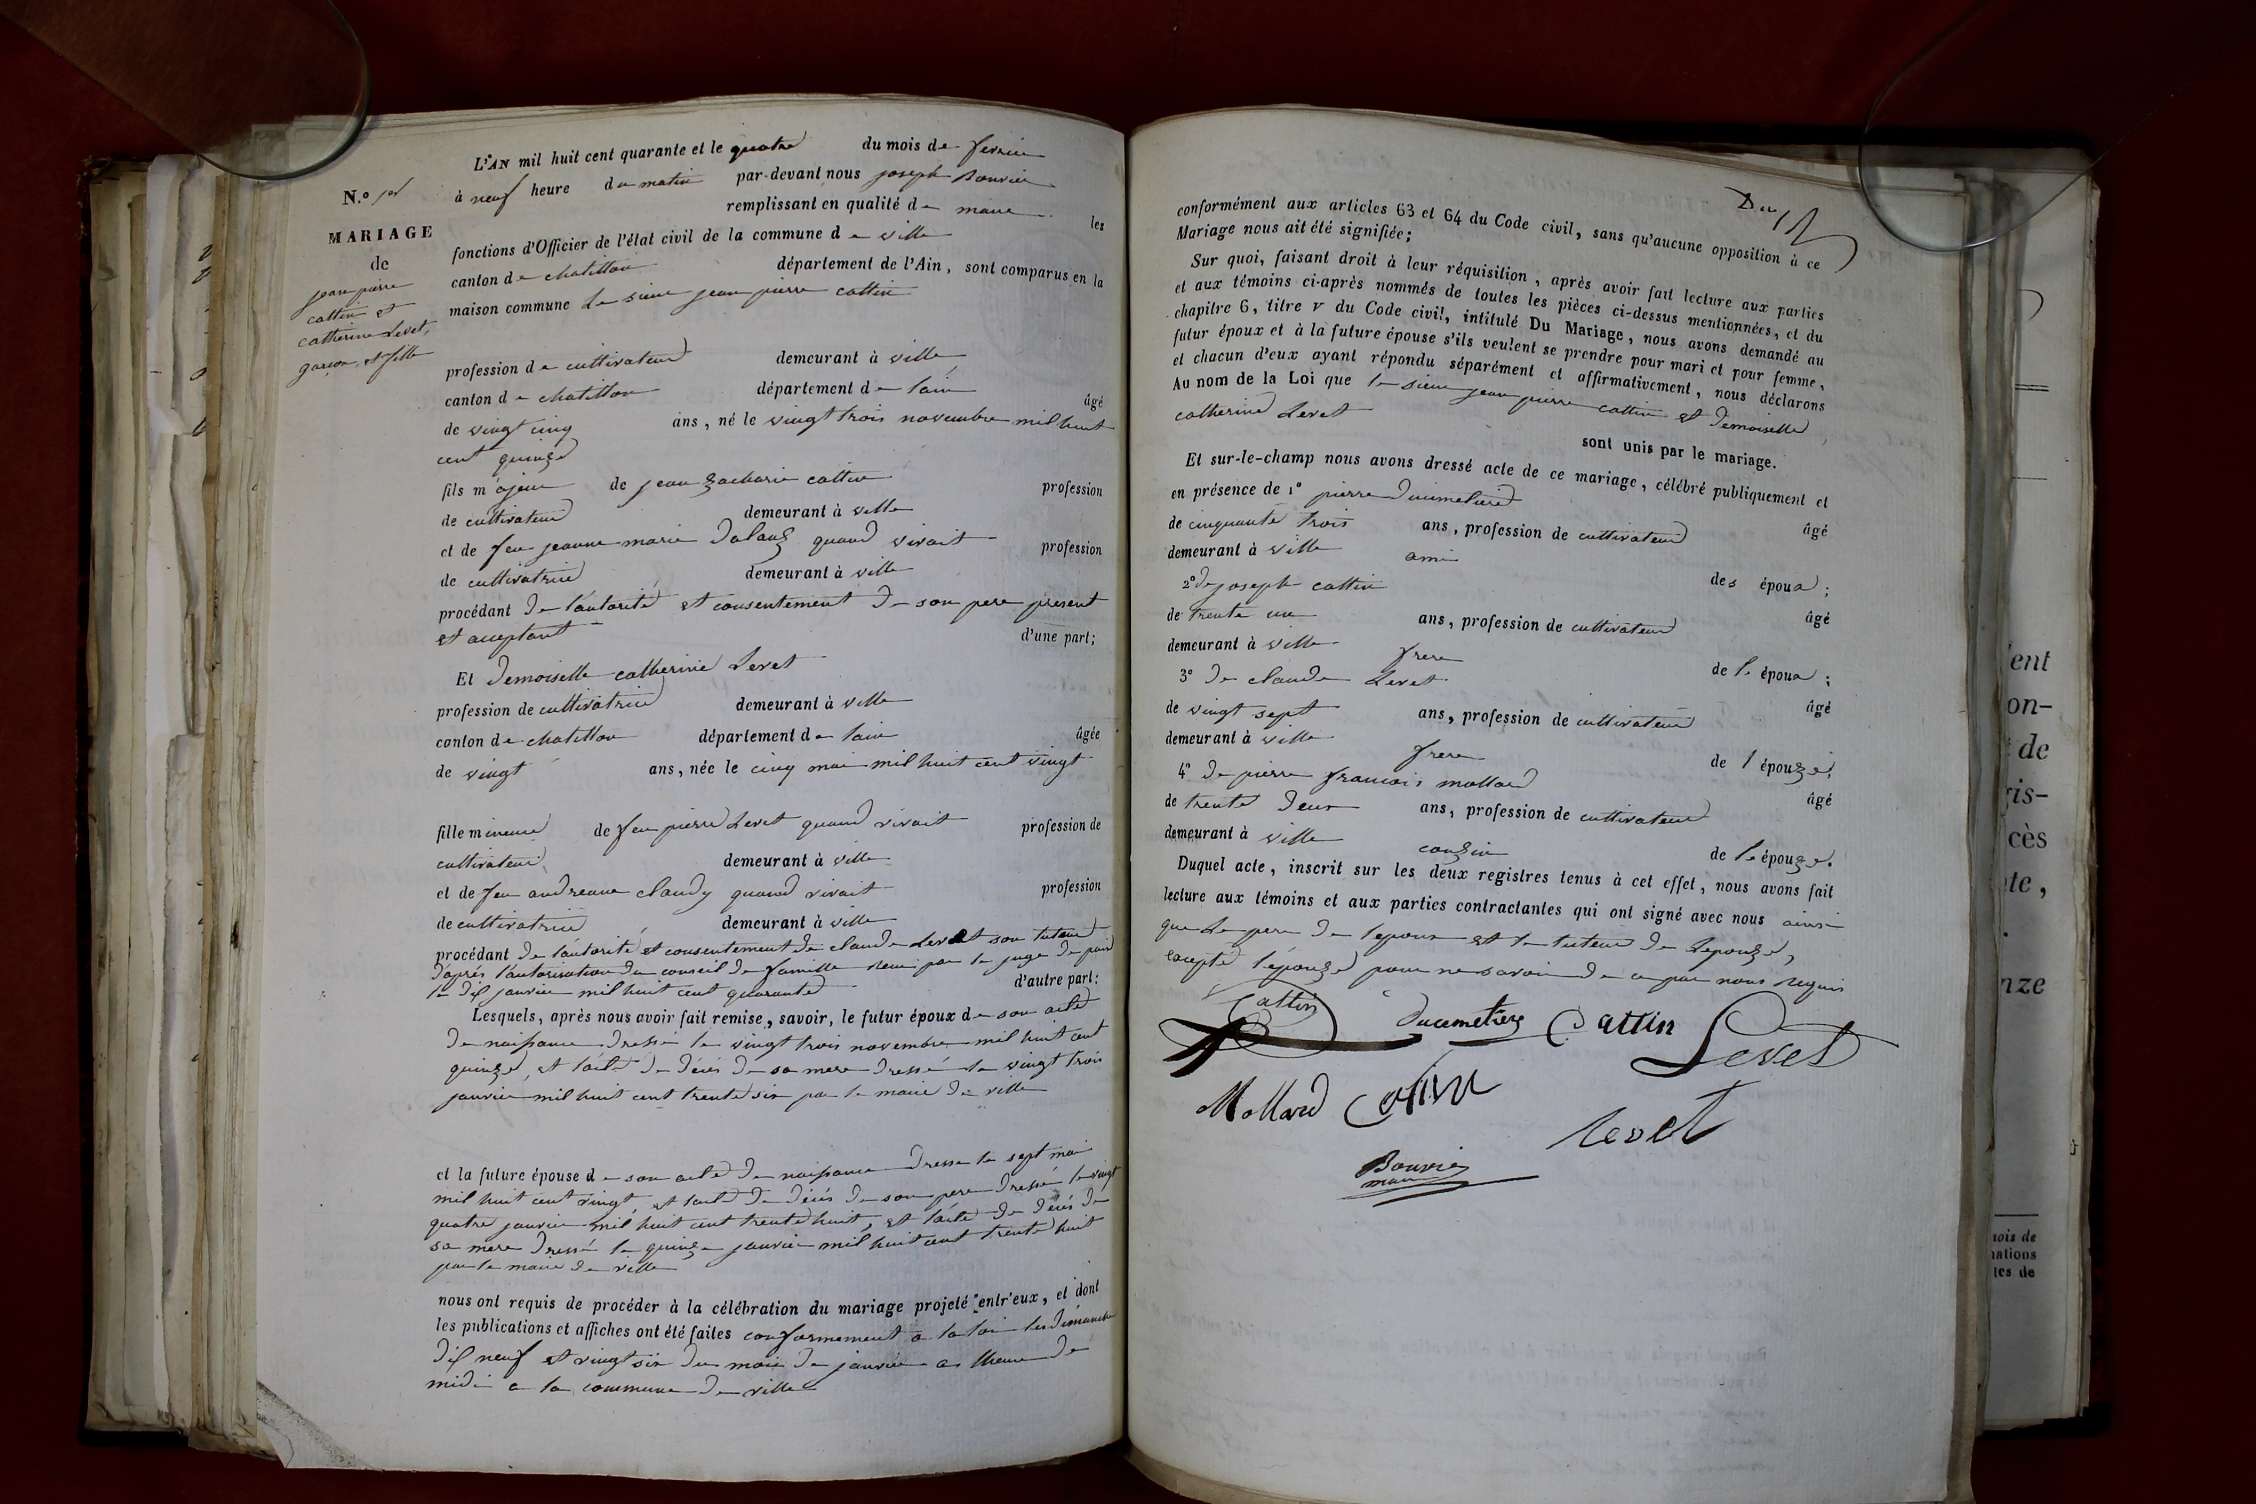 L'AN mil huit cent quarante et le quatre du mois de fevrier
N.º 1er à neuf heure du matin par-devant nous joseph Bouvier
remplissant en qualité de maire les
MARIAGE
fonctions d'Officier de l'état civil de la commune de ville
de
canton de chatillon département de l'Ain, sont comparus en la
jean pierre
maison commune Le sieur jean pierre cattin
cattin et
catherine Levet,
garçon et fille
profession de cultivateur demeurant à ville
canton de chatillon département de lain âgé
de vingt cinq ans, né le vingt trois novembre mil huit
cent quinze
fils majeur de jean zacharie cattin profession
de cultivateur demeurant à ville
et de feu jeanne marie quand vivait profession
de cultivatrice demeurant à ville
procédant De l'autorité et consentement De son pere present
et acceptant d'une part;
Et Demoiselle catherine Levet
profession de cultivatrice demeurant à ville
canton de chatillon département de lain âgée
de vingt ans, née le cinq mai mil huit cent vingt
fille mineure de feu pierre Levet quand vivait profession de
cultivateur demeurant à ville
et de feu andreane claudy quand vivait profession
de cultivatrice demeurant à ville
procédant De l'autorité et consentement De claude Levet son tuteur
D'aprés l'autorisation du conseil De famille reuni par le juge De paix
le Dix janvier mil huit cent quarante d'autre part:
Lesquels, après nous avoir fait remise, savoir, le futur époux de son acte
De naissance Dressé le vingt trois novembre mil huit cent
quinze, et l'acte De Décés De sa mere Dressé le vingt trois
janvier mil huit cent trente six par le maire De ville
et la future épouse de son acte De naissance Dressé le sept mai
mil huit cent vingt, et l'acte De Décés De son pere Dressé le vingt
quatre janvier mil huit cent trente huit, et l'acte De Décés De
sa mere Dressé le quinze janvier mil huit cent trente huit
par le maire De ville
nous ont requis de procéder à la célébration du mariage projeté entr'eux, et dont
les publications et affiches ont été faites conformement a la loi les Dimanche
Dix neuf et vingt six Du mois De janvier a lheure De
midi a la commune De ville
conformément aux articles 63 et 64 du Code civil, sans qu'aucune opposition à ce
Mariage nous ait été signifiée;
Sur quoi, faisant droit à leur réquisition, après avoir fait lecture aux parties
et aux témoins ci-après nommés de toutes les pièces ci-dessus mentionnées, et du
chapitre 6, titre v du Code civil, intitulé Du Mariage, nous avons demandé au
futur époux et à la future épouse s'ils veulent se prendre pour mari et pour femme,
et chacun d'eux ayant répondu séparément et affirmativement, nous déclarons
Au nom de la Loi que le sieur jean pierre cattin et Demoiselle
catherine Levet
sont unis par le mariage.
Et sur-le-champ nous avons dressé acte de ce mariage, célébré publiquement et
en présence de 1º pierre Ducimetiere âgé
de cinquante trois ans, profession de cultivateur
demeurant à ville ami des époux;
2º De joseph cattin âgé
de trente un ans, profession de cultivateur
demeurant à ville frere de l'époux;
3º De claude Levet âgé
de vingt sept ans, profession de cultivateur
demeurant à ville frere de l'épouze;
4º De pierre francois mollard âgé
de trente Deux ans, profession de cultivateur
demeurant à ville couzin de l'épouze.
Duquel acte, inscrit sur les deux registres tenus à cet effet, nous avons fait
lecture aux témoins et aux parties contractantes qui ont signé avec nous ainsi
que Le pere De l'epoux et le tuteur De Lepouze,
excepté l'épouze pour ne savoir De ce par nous requis
Cattin Ducemetiere Cattin Levet
Mollard Cattin
Levet
Bouvier
maire
lent
on-
de
ris-
cès
nte,
nze
nois de
nations
tes de